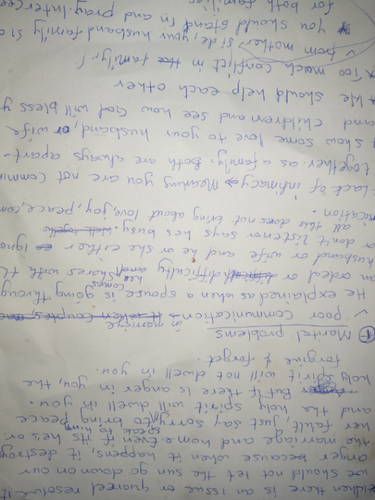 there is an issue or quarrel resolve
we should not let the sun go down on our
anger because when it happens, it destroy
the marriage and home. Even if its his or
her fault, just say sorry to bring peace
and the holy spirit will dwell in you.
But if there is anger in the you, the
holy spirit will not dwell in you.
forgive & forget.
Marital problems
✓ Poor communication in marriage
He explained as when a spouse is going through
an or difficulty and comes Shares with
husband or wife and he or she either
or don't listen or says he's busy.
all this does not bring about love, joy, peace, com
nication.
- Lack of infimacy Meaning you are not
together as a family. Both are always apart-
show some love to your husband, or wife
and children and see how God will bless y
* We should help each other
* Too much conflict in the family,
✓ from mother side, your husband family si
* you should stand in and pray. Interce
for both families